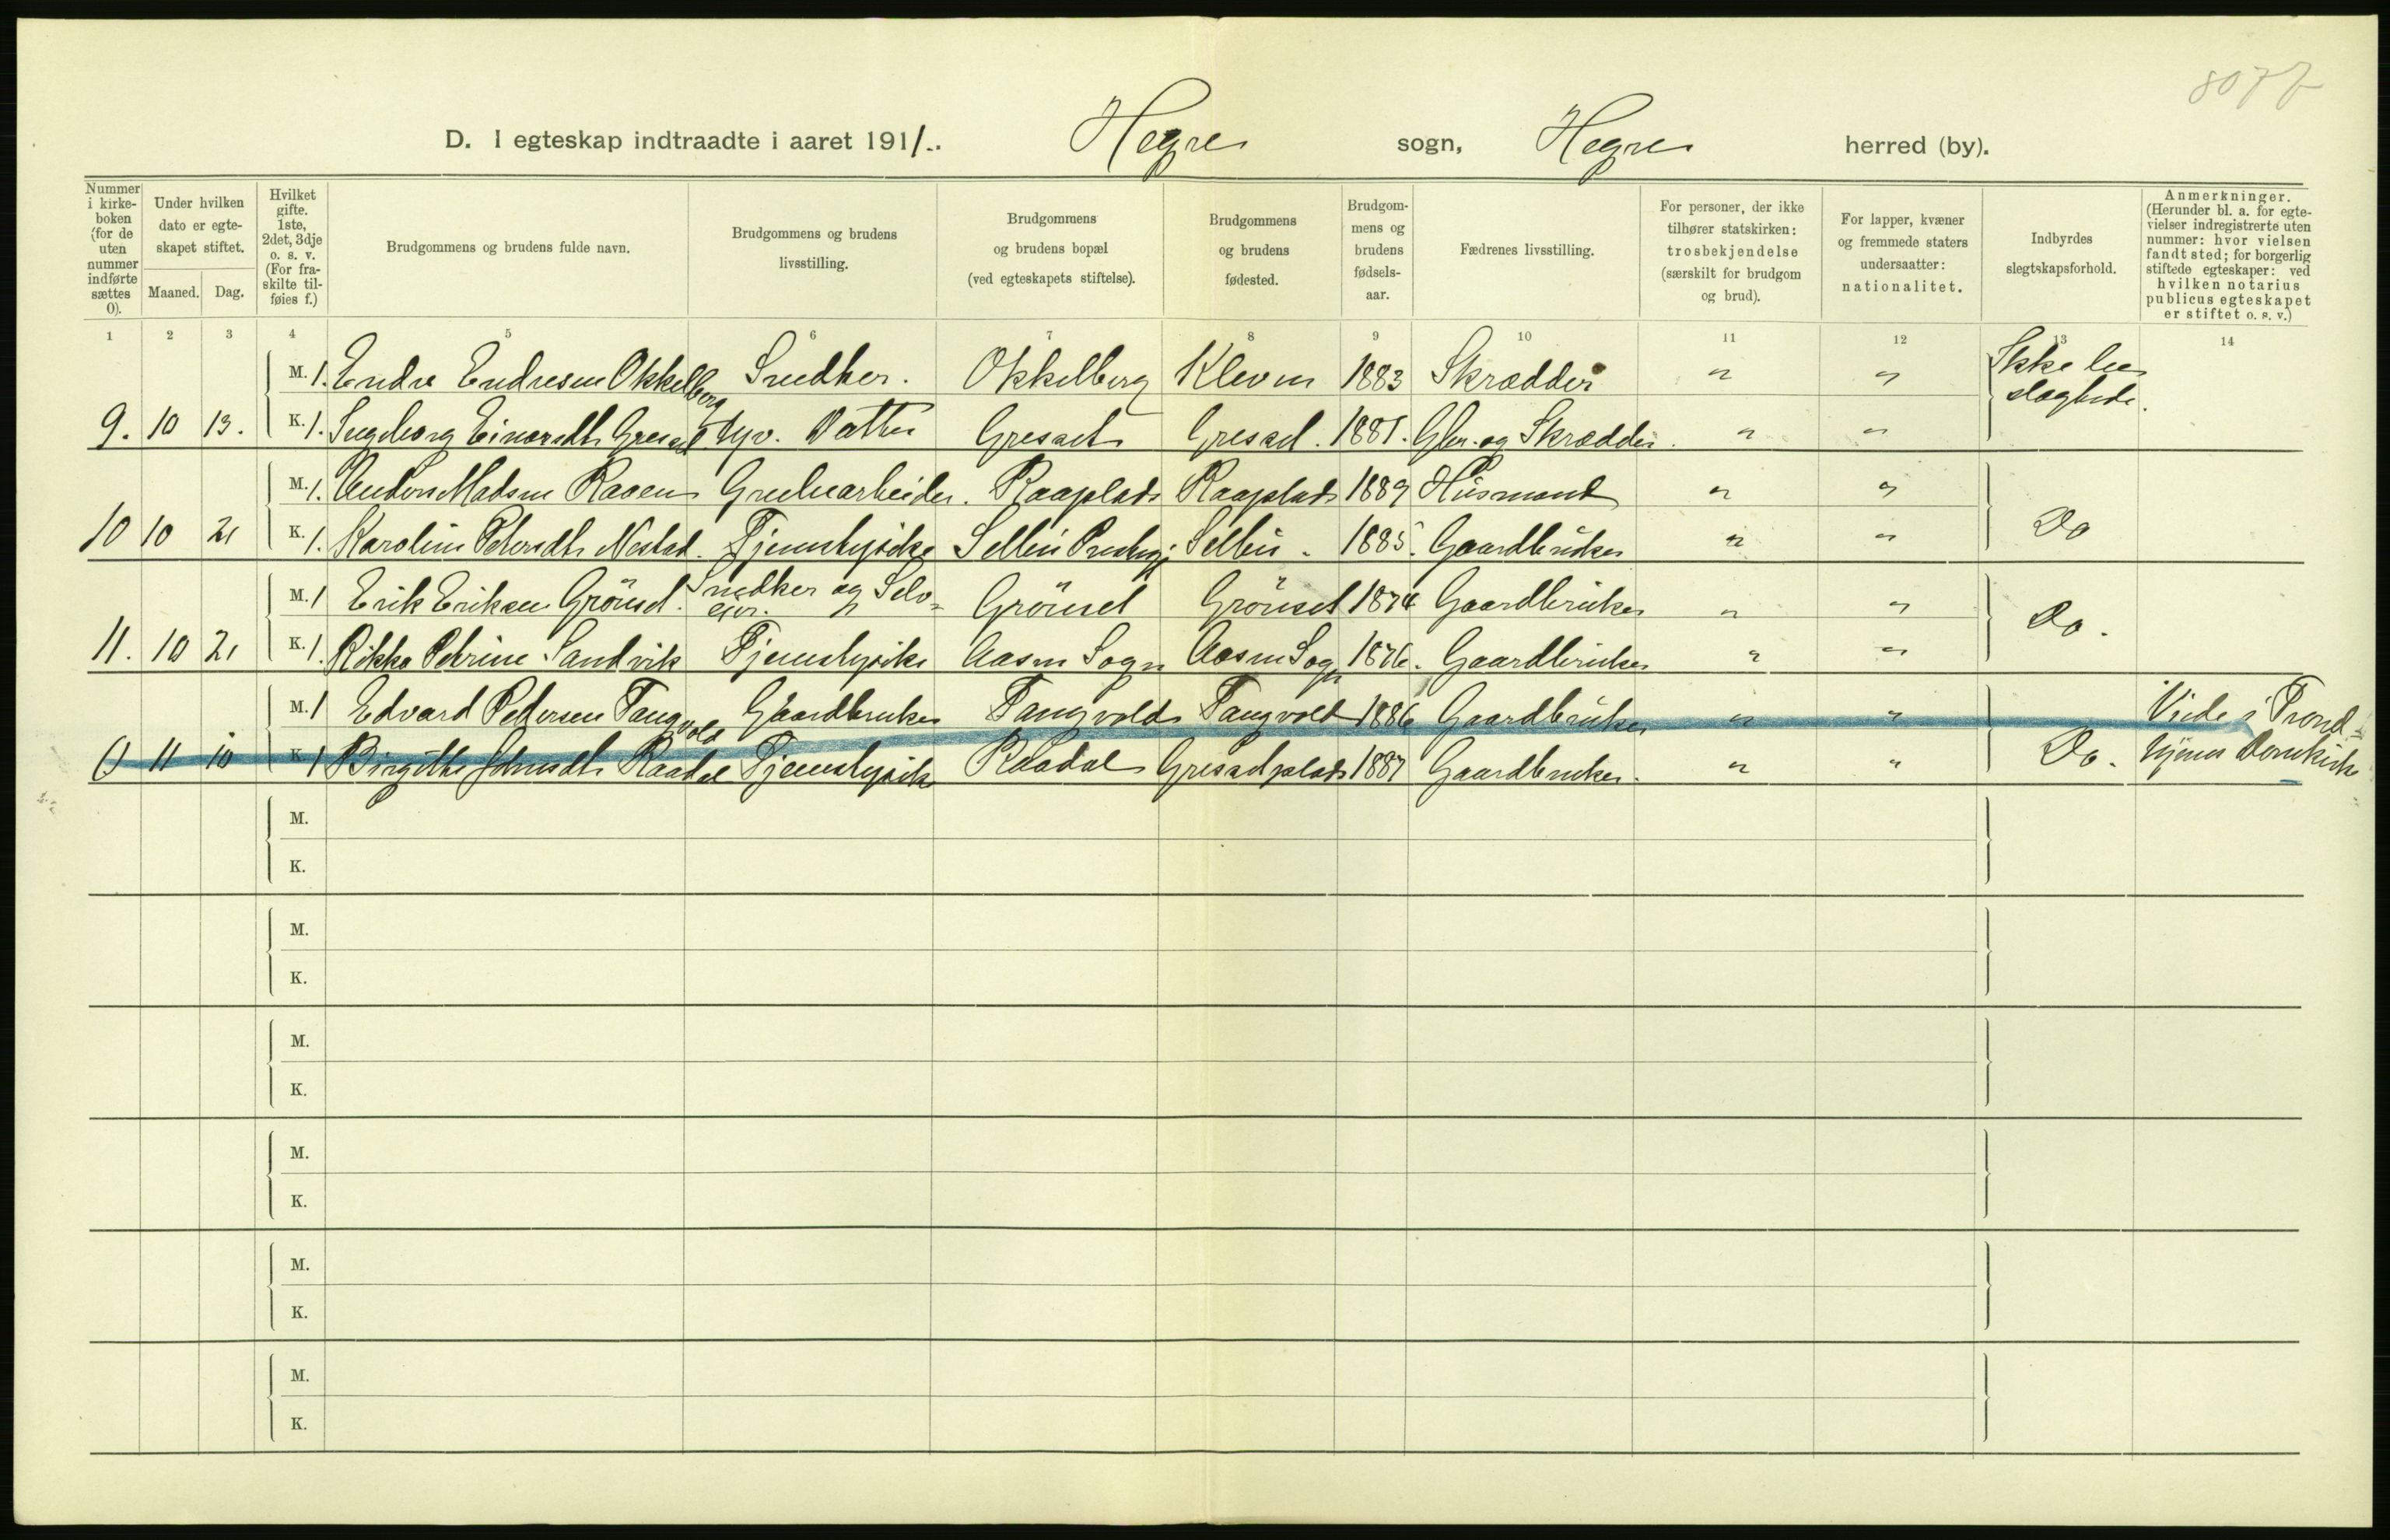 8077
D. I egteskap indtraadte i aaret 1911. Hegre sogn, Hegre herred (by).
Nummer i kirkeboken (for de uten nummer indførte sættes 0).
Under hvilken dato er egteskapet stiftet.
Maaned. Dag.
Hvilket gifte. 1ste, 2det, 3dje o. s. v. (For fraskilte tilføies f.)
Brudgommens og brudens fulde navn.
Brudgommens og brudens livsstilling.
Brudgommens og brudens bopæl (ved egteskapets stiftelse).
Brudgommens og brudens fødested.
Brudgommens og brudens fødselsaar.
Fædrenes livsstilling.
For personer, der ikke tilhører statskirken: trosbekjendelse (særskilt for brudgom og brud).
For lapper, kvæner og fremmede staters undersaatter: nationalitet.
Indbyrdes slegtskapsforhold.
Anmerkninger. (Herunder bl. a. for egtevielser indregistrerte uten nummer: hvor vielsen fandt sted; for borgerlig stiftede egteskaper: ved hvilken notarius publicus egteskapet er stiftet o. s. v.)
1 2 3 4 5 6 7 8 9 10 11 12 13 14
M. 1. Endre Endresen Okkelberg Snedker. Okkelberg Kleven 1883 Skrædder " " Ikke beslægtede.
9. 10 13. K. 1. Ingeborg Einarsdtr Gresset Gresset Gresset. 1881. Gbr. og Skrædder. " "
M. 1. Anders Madsen Raaen Grubearbeider. Raaplads Raaplads 1889 Husmand " "
10 10 21 K. 1. Karoline Petersdtr Nestad. Tjenestepike Selbu Prestegj. Selbu. 1885. Gaardbruker " " Do
M. 1 Erik Eriksen Grönset. Snedker og Selveier. Grönset Grönset 1874 Gaardbruker " "
11. 10 21 K. 1. Rikka Petrine Sandvik Tjenestepike Aasen Sogn Aasen Sogn 1876. Gaardbruker " " Do.
M. 1 Edvard Petersen Fangvold Gaardbruker Fangvold Fangvold 1886 Gaardbruker " " Viede i Trond-
0 11 10 K. 1 Birgitte Johnsdtr Raadal Tjenestepike Raadal Gressetplads 1887 Gaardbruker. " " Do. hjems Domkirke
M.
K.
M.
K.
M.
K.
M.
K.
M.
K.
M.
K.